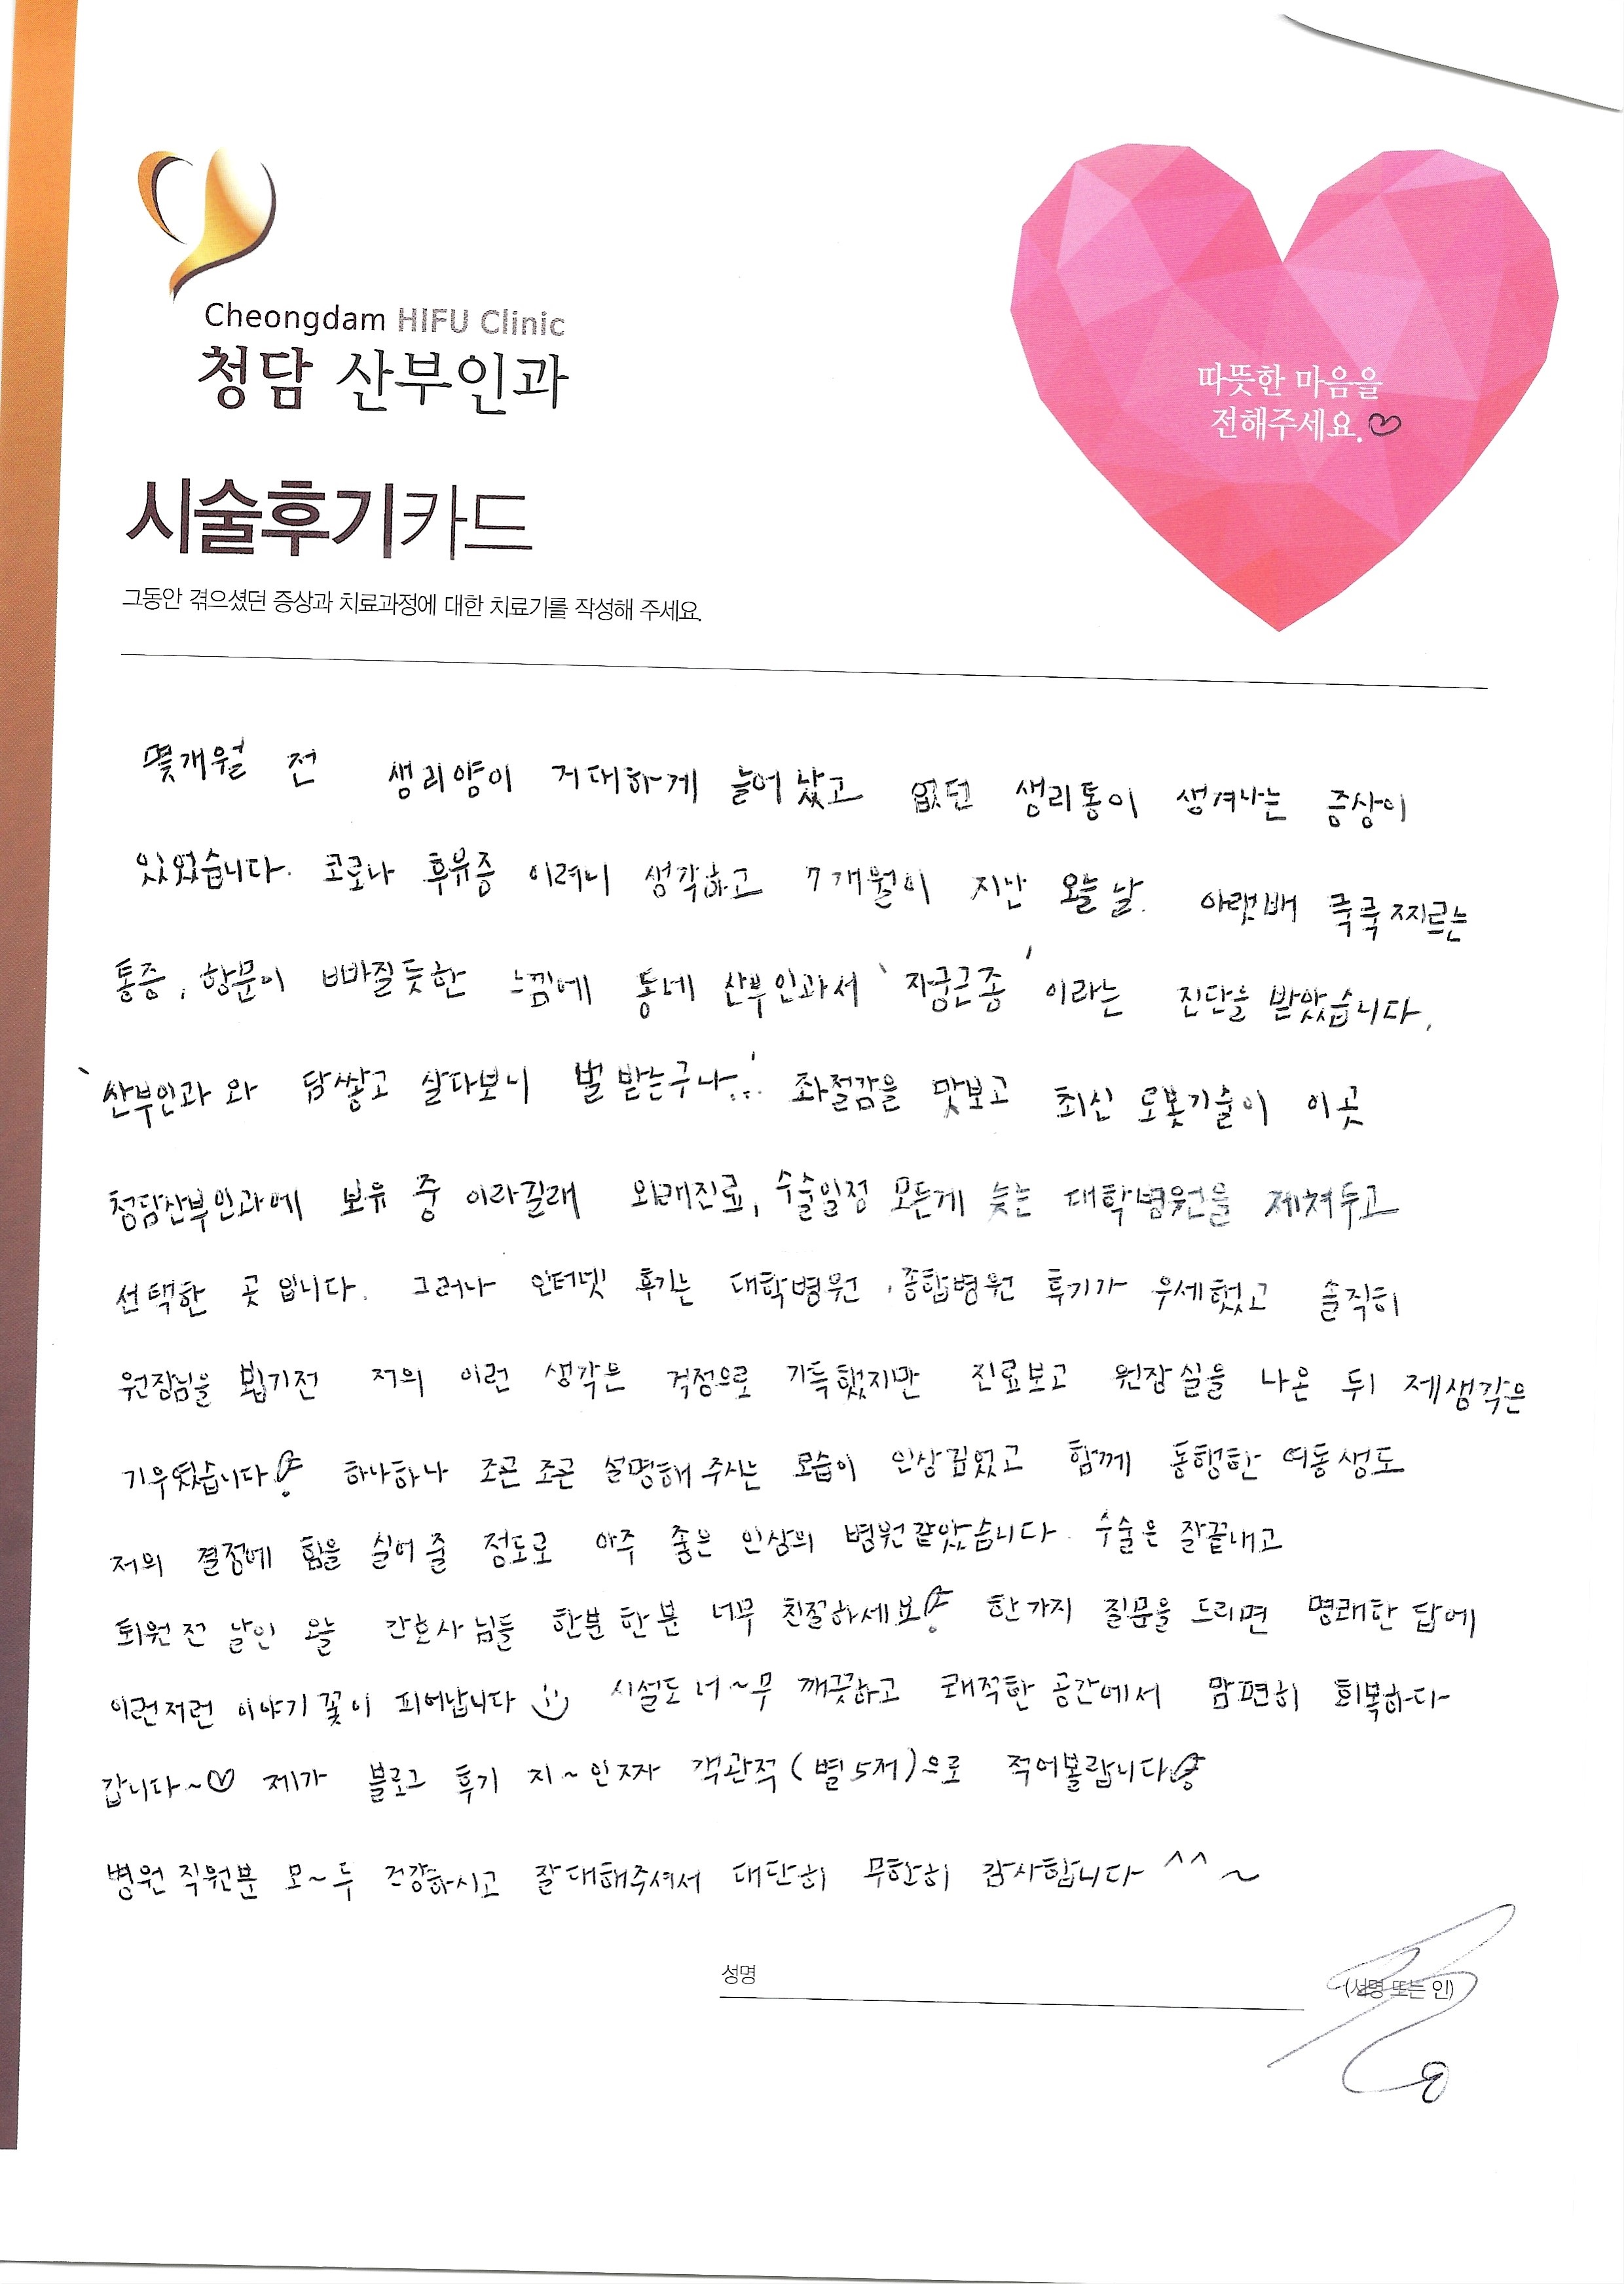 Cheongdam HIFU Clinic
청담 산부인과
따뜻한 마음을
전해주세요.♡
시술후기카드
그동안 겪으셨던 증상과 치료과정에 대한 치료기를 작성해 주세요.
몇개월 전 생리양이 거대하게 늘어났고 없던 생리통이 생겨나는 증상이
있었습니다. 코로나 후유증 이려니 생각하고 7개월이 지난 오늘날. 아랫배 쿡쿡 찌르는
통증, 항문이 빠질듯한 느낌에 동네 산부인과서 '자궁근종' 이라는 진단을 받았습니다.
'산부인과 와 담쌓고 살다보니 벌 받는구나...' 좌절감을 맛보고 최신 로봇기술이 이곳
청담산부인과에 보유 중 이라길래 외래진료, 수술일정 모든게 늦는 대학병원을 제쳐두고
선택한 곳 입니다. 그러나 인터넷 후기는 대학병원, 종합병원 후기가 우세했고 솔직히
원장님을 뵙기전 저의 이런 생각은 걱정으로 가득했지만 진료보고 원장실을 나온 뒤 제생각은
기우였습니다! 하나하나 조곤조곤 설명해 주시는 모습이 인상깊었고 함께 동행한 여동생도
저의 결정에 힘을 실어 줄 정도로 아주 좋은 인상의 병원같았습니다. 수술은 잘끝내고
퇴원 전 날인 오늘 간호사님들 한분 한분 너무 친절하세요! 한가지 질문을 드리면 명쾌한 답에
이런저런 이야기 꽃이 피어납니다 시설도 너~무 깨끗하고 쾌적한 공간에서 맘편히 회복하다
갑니다~♡ 제가 블로그 후기 지~인짜 객관적(별5저)으로 적어볼랍니다!
병원 직원분 모~두 건강하시고 잘대해주셔서 대단히 무한히 감사합니다 ^^~
성명 (서명 또는 인)